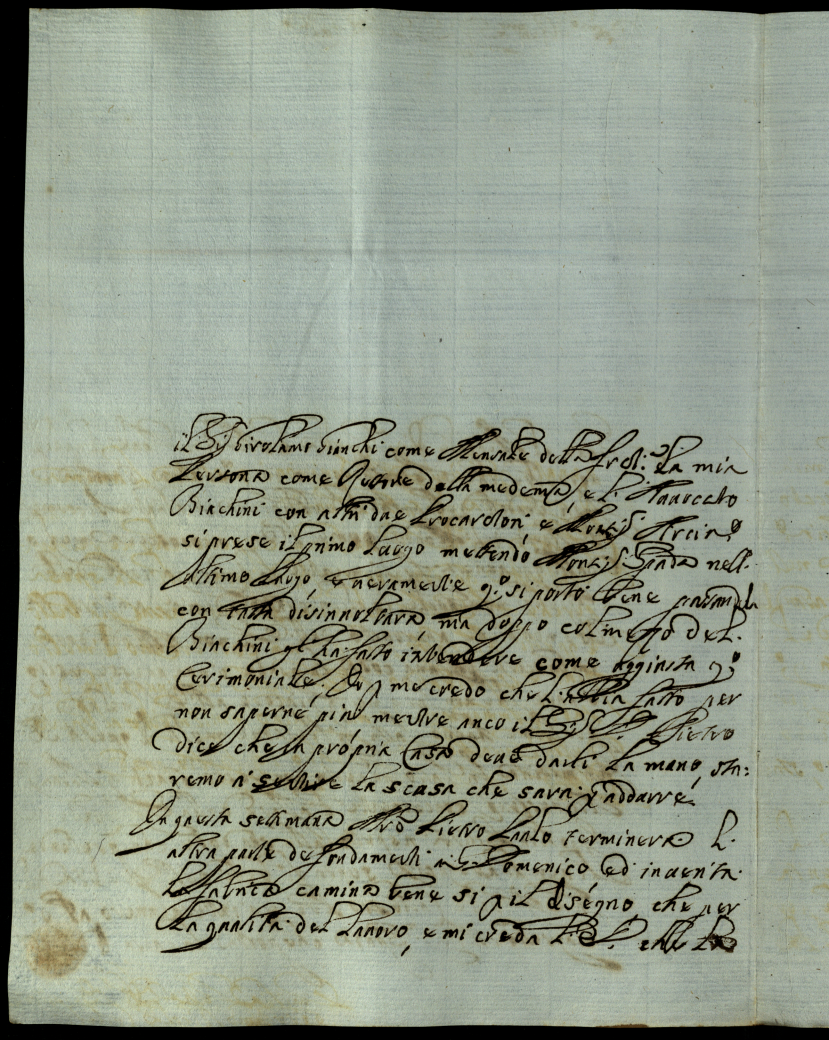 il Sig. Girolamo Bianchi come Mensale della la mia
Persona come Rettore della medema, e l'Avvocato
Bianchini con altri due Procardoni e Monsig.
si prese il primo luogo mettendo Monsig. Spada nell'
ultimo luogo e veramente q.o si portò bene
con tutta disinvoltura ma doppo col mezzo del
Bianchini gl'ha fatto intendere come aggiusta q.o
Cerimoniale. Io me credo che l'abbia fatto per
non saperne più mentre anco il Sig. Pietro
dice che in propria Casa deve darli la mano, sta:
remo a sentire la scusa che sarà p addurre.
In questa settimana Mro Pietro Paolo terminerà l'
altra parte de fondamenti a S. Domenico ed in verità
la fabrica camina bene si p il disegno che per
la qualità del lavoro, e mi creda che